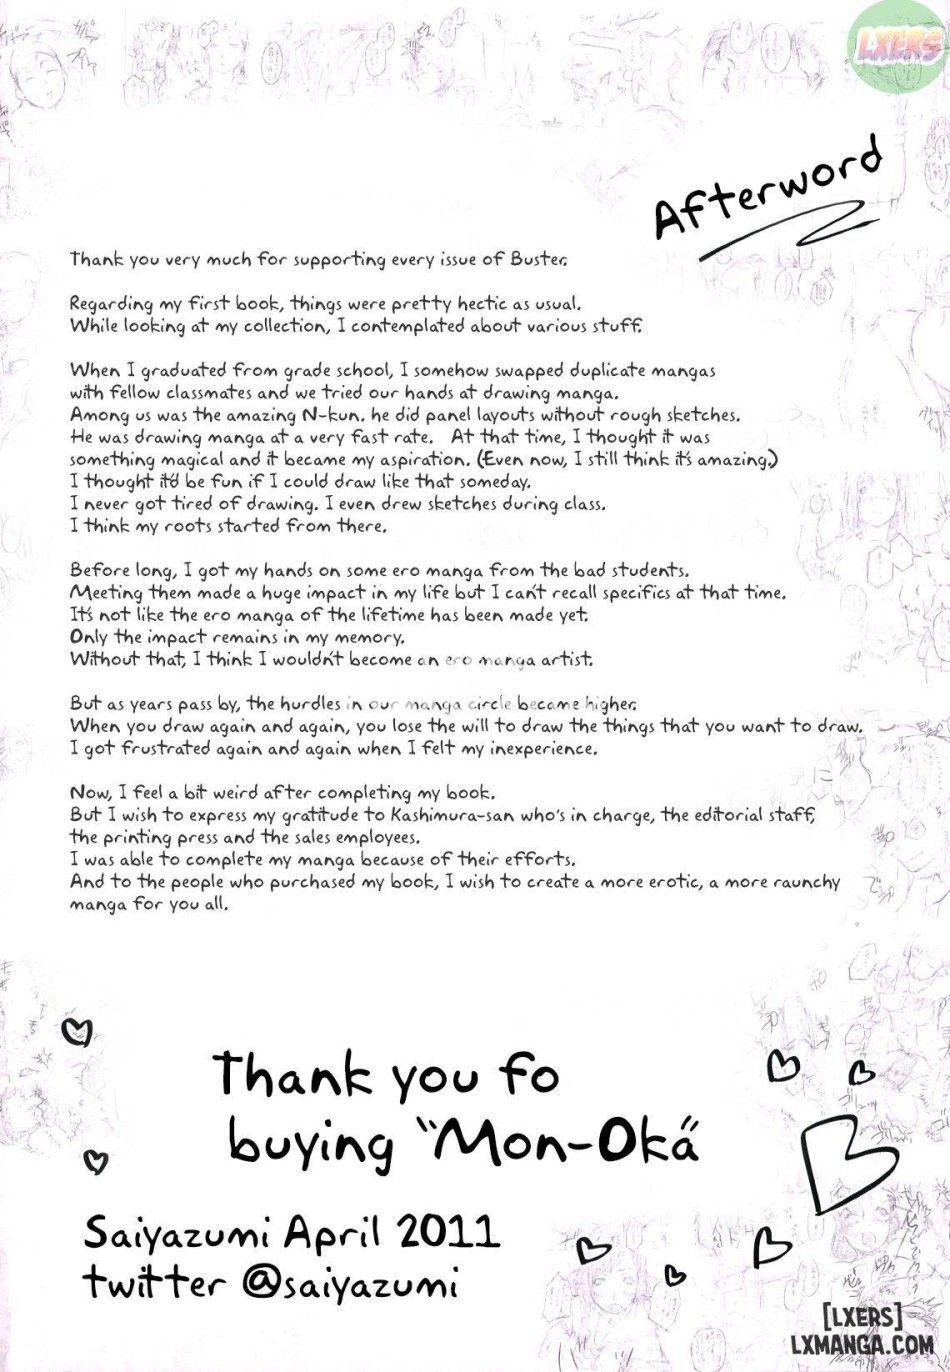 LXERS
Afterword
Thank you very much for supporting every issue of Buster.
Regarding my first book, things were pretty hectic as usual.
While looking at my collection, I contemplated about various stuff.
When I graduated from grade school, I somehow swapped duplicate mangas
with fellow classmates and we tried our hands at drawing manga.
Among us was the amazing N-kun. he did panel layouts without rough sketches.
He was drawing manga at a very fast rate. At that time, I thought it was
something magical and it became my aspiration. (Even now, I still think it's amazing.)
I thought it'd be fun if I could draw like that someday.
I never got tired of drawing. I even drew sketches during class.
I think my roots started from there.
Before long, I got my hands on some ero manga from the bad students.
Meeting them made a huge impact in my life but I can't recall specifics at that time.
It's not like the ero manga of the lifetime has been made yet.
Only the impact remains in my memory.
Without that, I think I wouldn't become an ero manga artist.
But as years pass by, the hurdles in our manga circle became higher.
When you draw again and again, you lose the will to draw the things that you want to draw.
I got frustrated again and again when I felt my inexperience.
Now, I feel a bit weird after completing my book.
But I wish to express my gratitude to Kashimura-san who's in charge, the editorial staff,
the printing press and the sales employees.
I was able to complete my manga because of their efforts.
And to the people who purchased my book, I wish to create a more erotic, a more raunchy
manga for you all.
Thank you fo
buying "Mon-Oka"
Saiyazumi April 2011
twitter @saiyazumi
[LXERS]
LXMANGA.COM